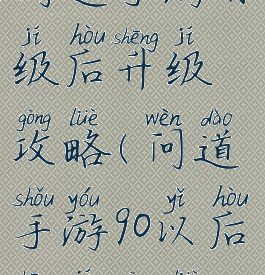 jí hòu shēng jí
级后升级
gōng lüè wèn dào
攻略(问道
shǒu yóu yǐ hòu
手游90以后